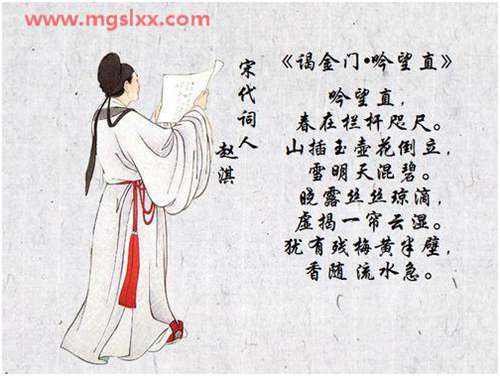 www.mgslxx.com
宋代词人
赵淇
《谒金门•吟望直》
吟望直，
春在栏杆咫尺。
山插玉壶花倒立，
雪明天混碧。
晓露丝丝琼滴，
虚揭一帘云湿。
犹有残梅黄半壁，
香随流水急。